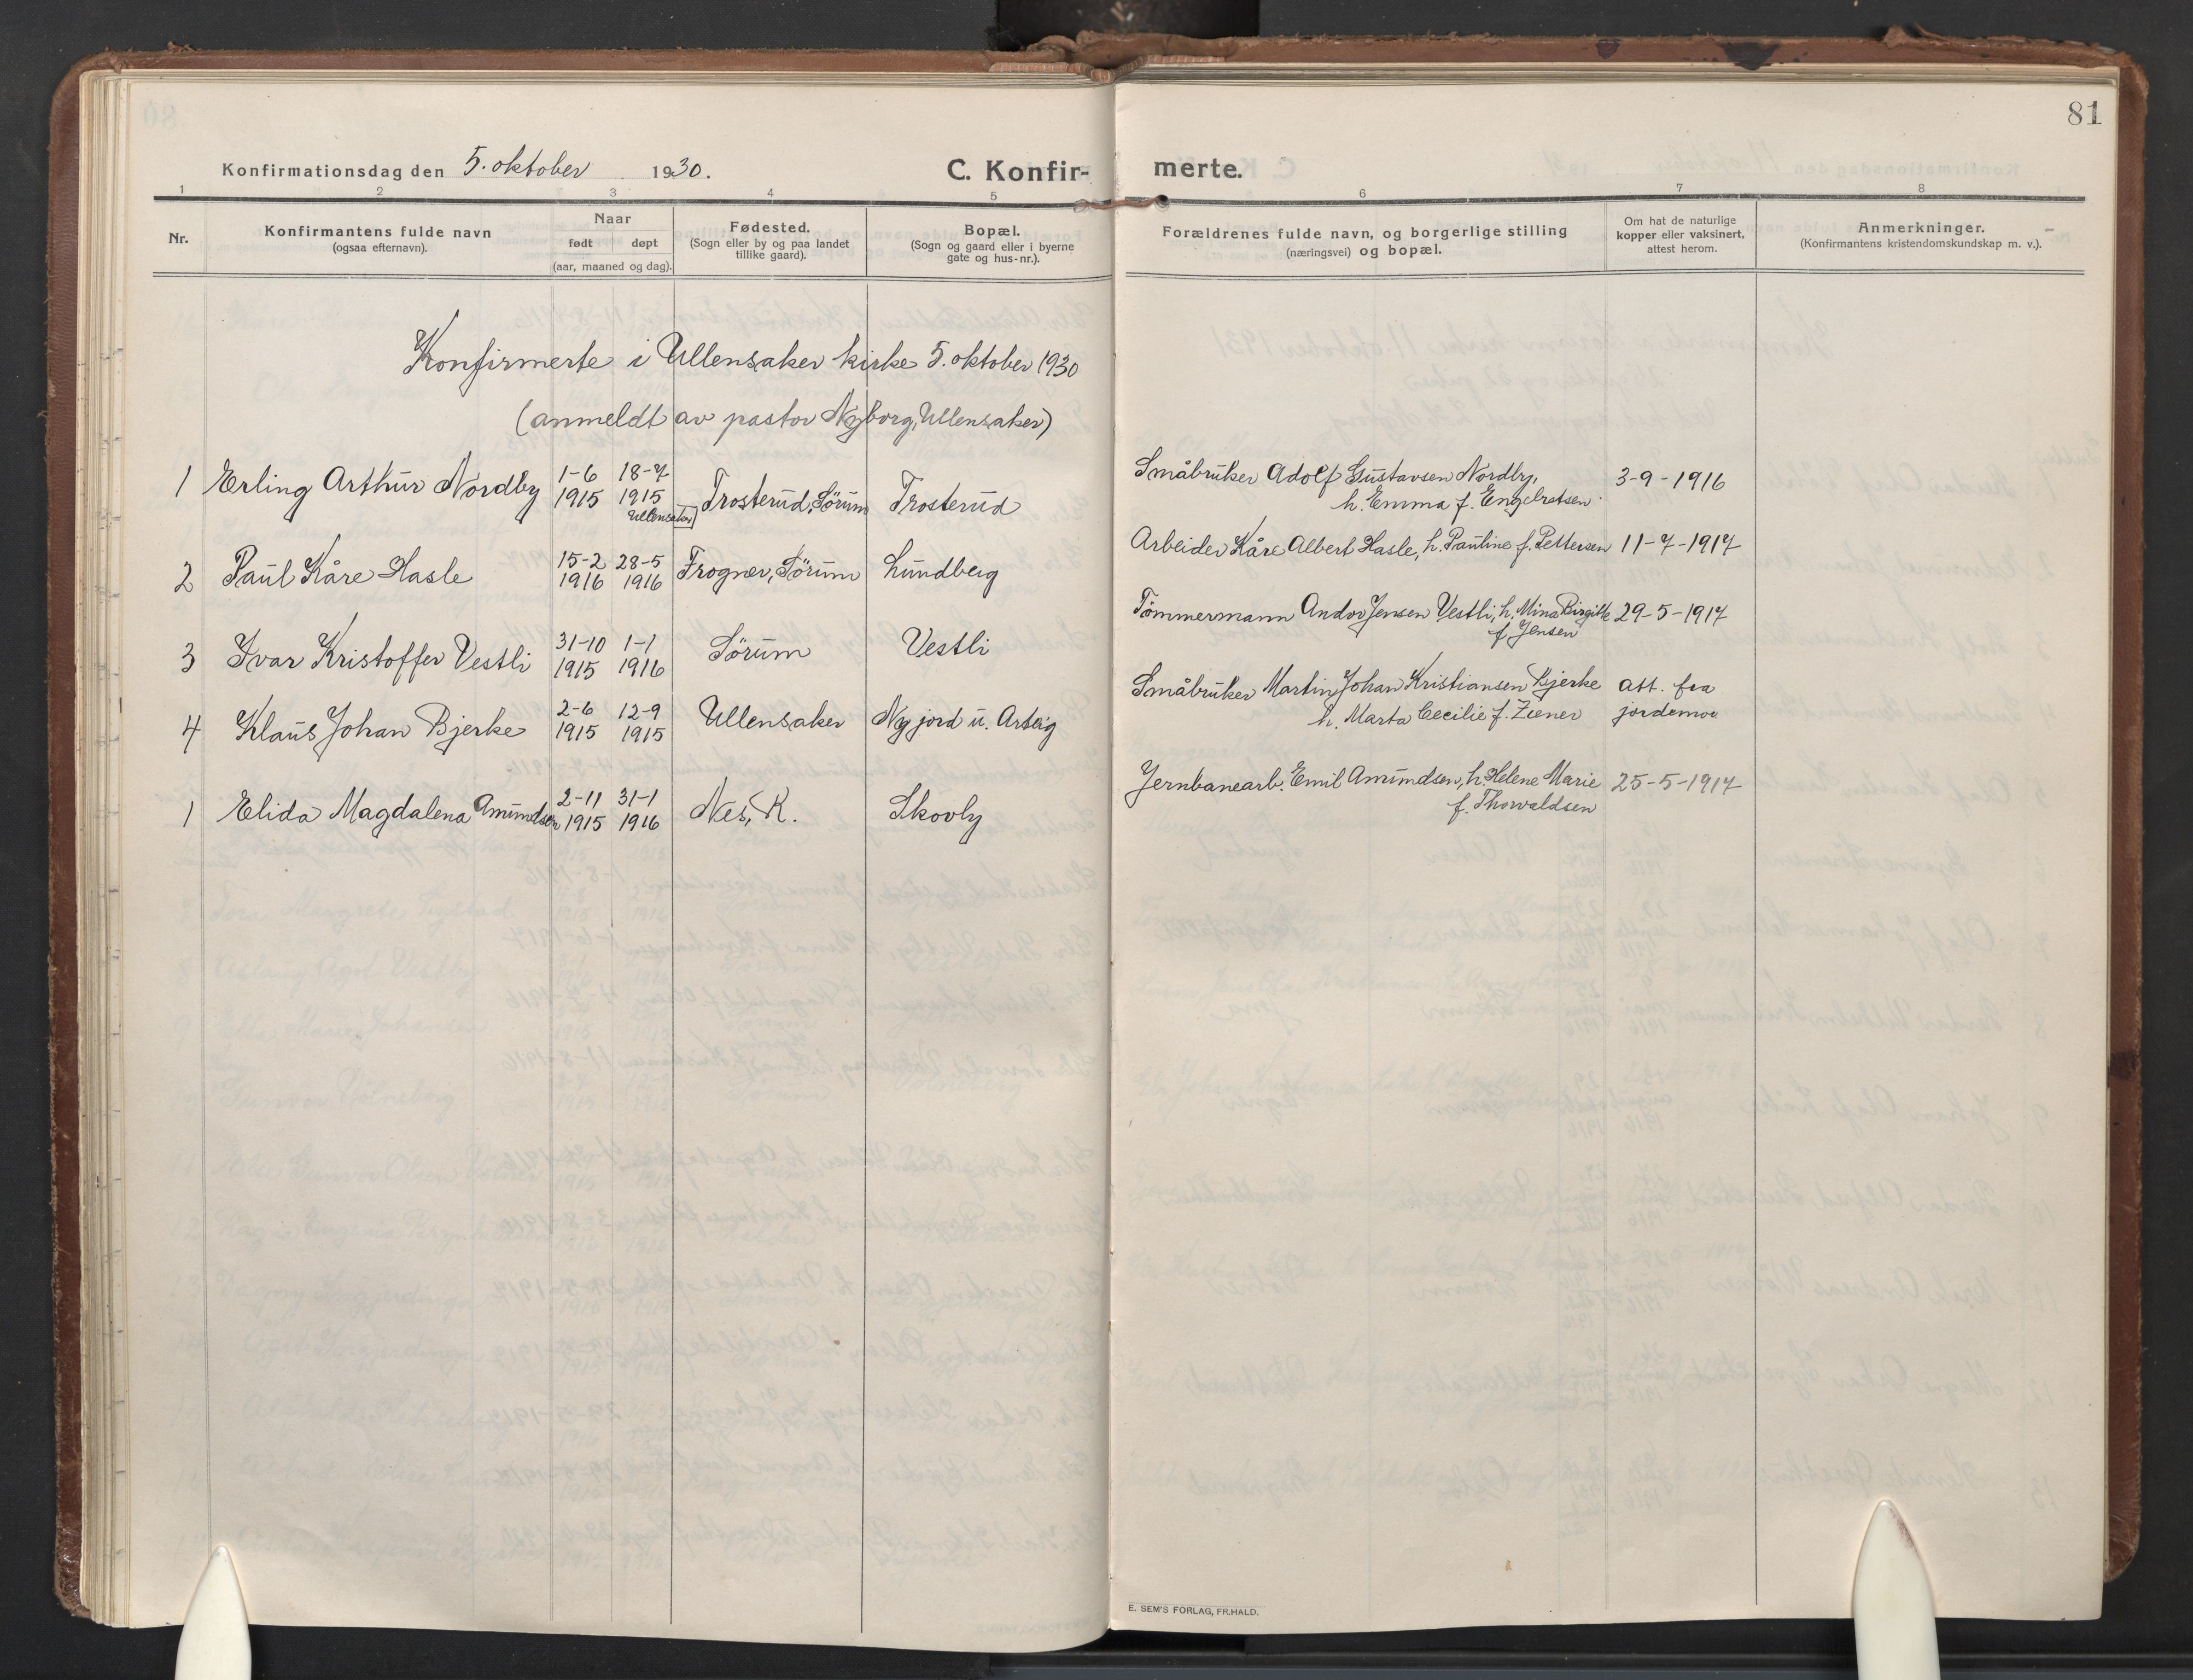 81
Konfirmationsdag den 5. oktober 1930.
C. Konfir- merte.
1 2 3 4 5 6 7 8
Nr.
Konfirmantens fulde navn
(ogsaa efternavn).
Naar
født døpt
(aar, maaned og dag).
Fødested.
(Sogn eller by og paa landet
tillike gaard).
Bopæl.
(Sogn og gaard eller i byerne
gate og hus-nr.).
Forældrenes fulde navn, og borgerlige stilling
(næringsvei) og bopæl.
Om hat de naturlige
kopper eller vaksinert,
attest herom.
Anmerkninger.
(Konfirmantens kristendomskundskap m. v.).
Konfirmerte i Ullensaker kirke 5. oktober 1930
(anmeldt av pastor Nyborg, Ullensaker)
1 Erling Arthur Nordby 1-6 1915 18-7 1915 Ullensaker Trosterud, Sørum Trosterud Småbruker Adolf Gustavsen Nordby, 3-9-1916
h. Emma f. Engebretsen.
2 Paul Kåre Hasle 15-2 1916 28-5 1916 Frogner, Sørum Lundberg Arbeider Kåre Albert Hasle, h. Pauline f. Pettersen 11-7-1917
3 Ivar Kristoffer Vestli 31-10 1915 1-1 1916 Sørum Vestli Tömmermann Andor Jensen Vestli, h. Mina Birgitte 29-5-1917
f. Jensen
4 Klaus Johan Bjerke 2-6 1915 12-9 1915 Ullensaker Nyjord u. Arteig Småbruker Martin Johan Kristiansen Bjerke att. fra
h. Marta Cecilie f. Ziener jordemor
1 Elida Magdalena Amundsen 2-11 1915 31-1 1916 Nes, R. Skovly Jernbanearb. Emil Amundsen, h. Helene Marie 25-5-1917
f. Thorvaldsen
E. SEM'S FORLAG, FR.HALD.